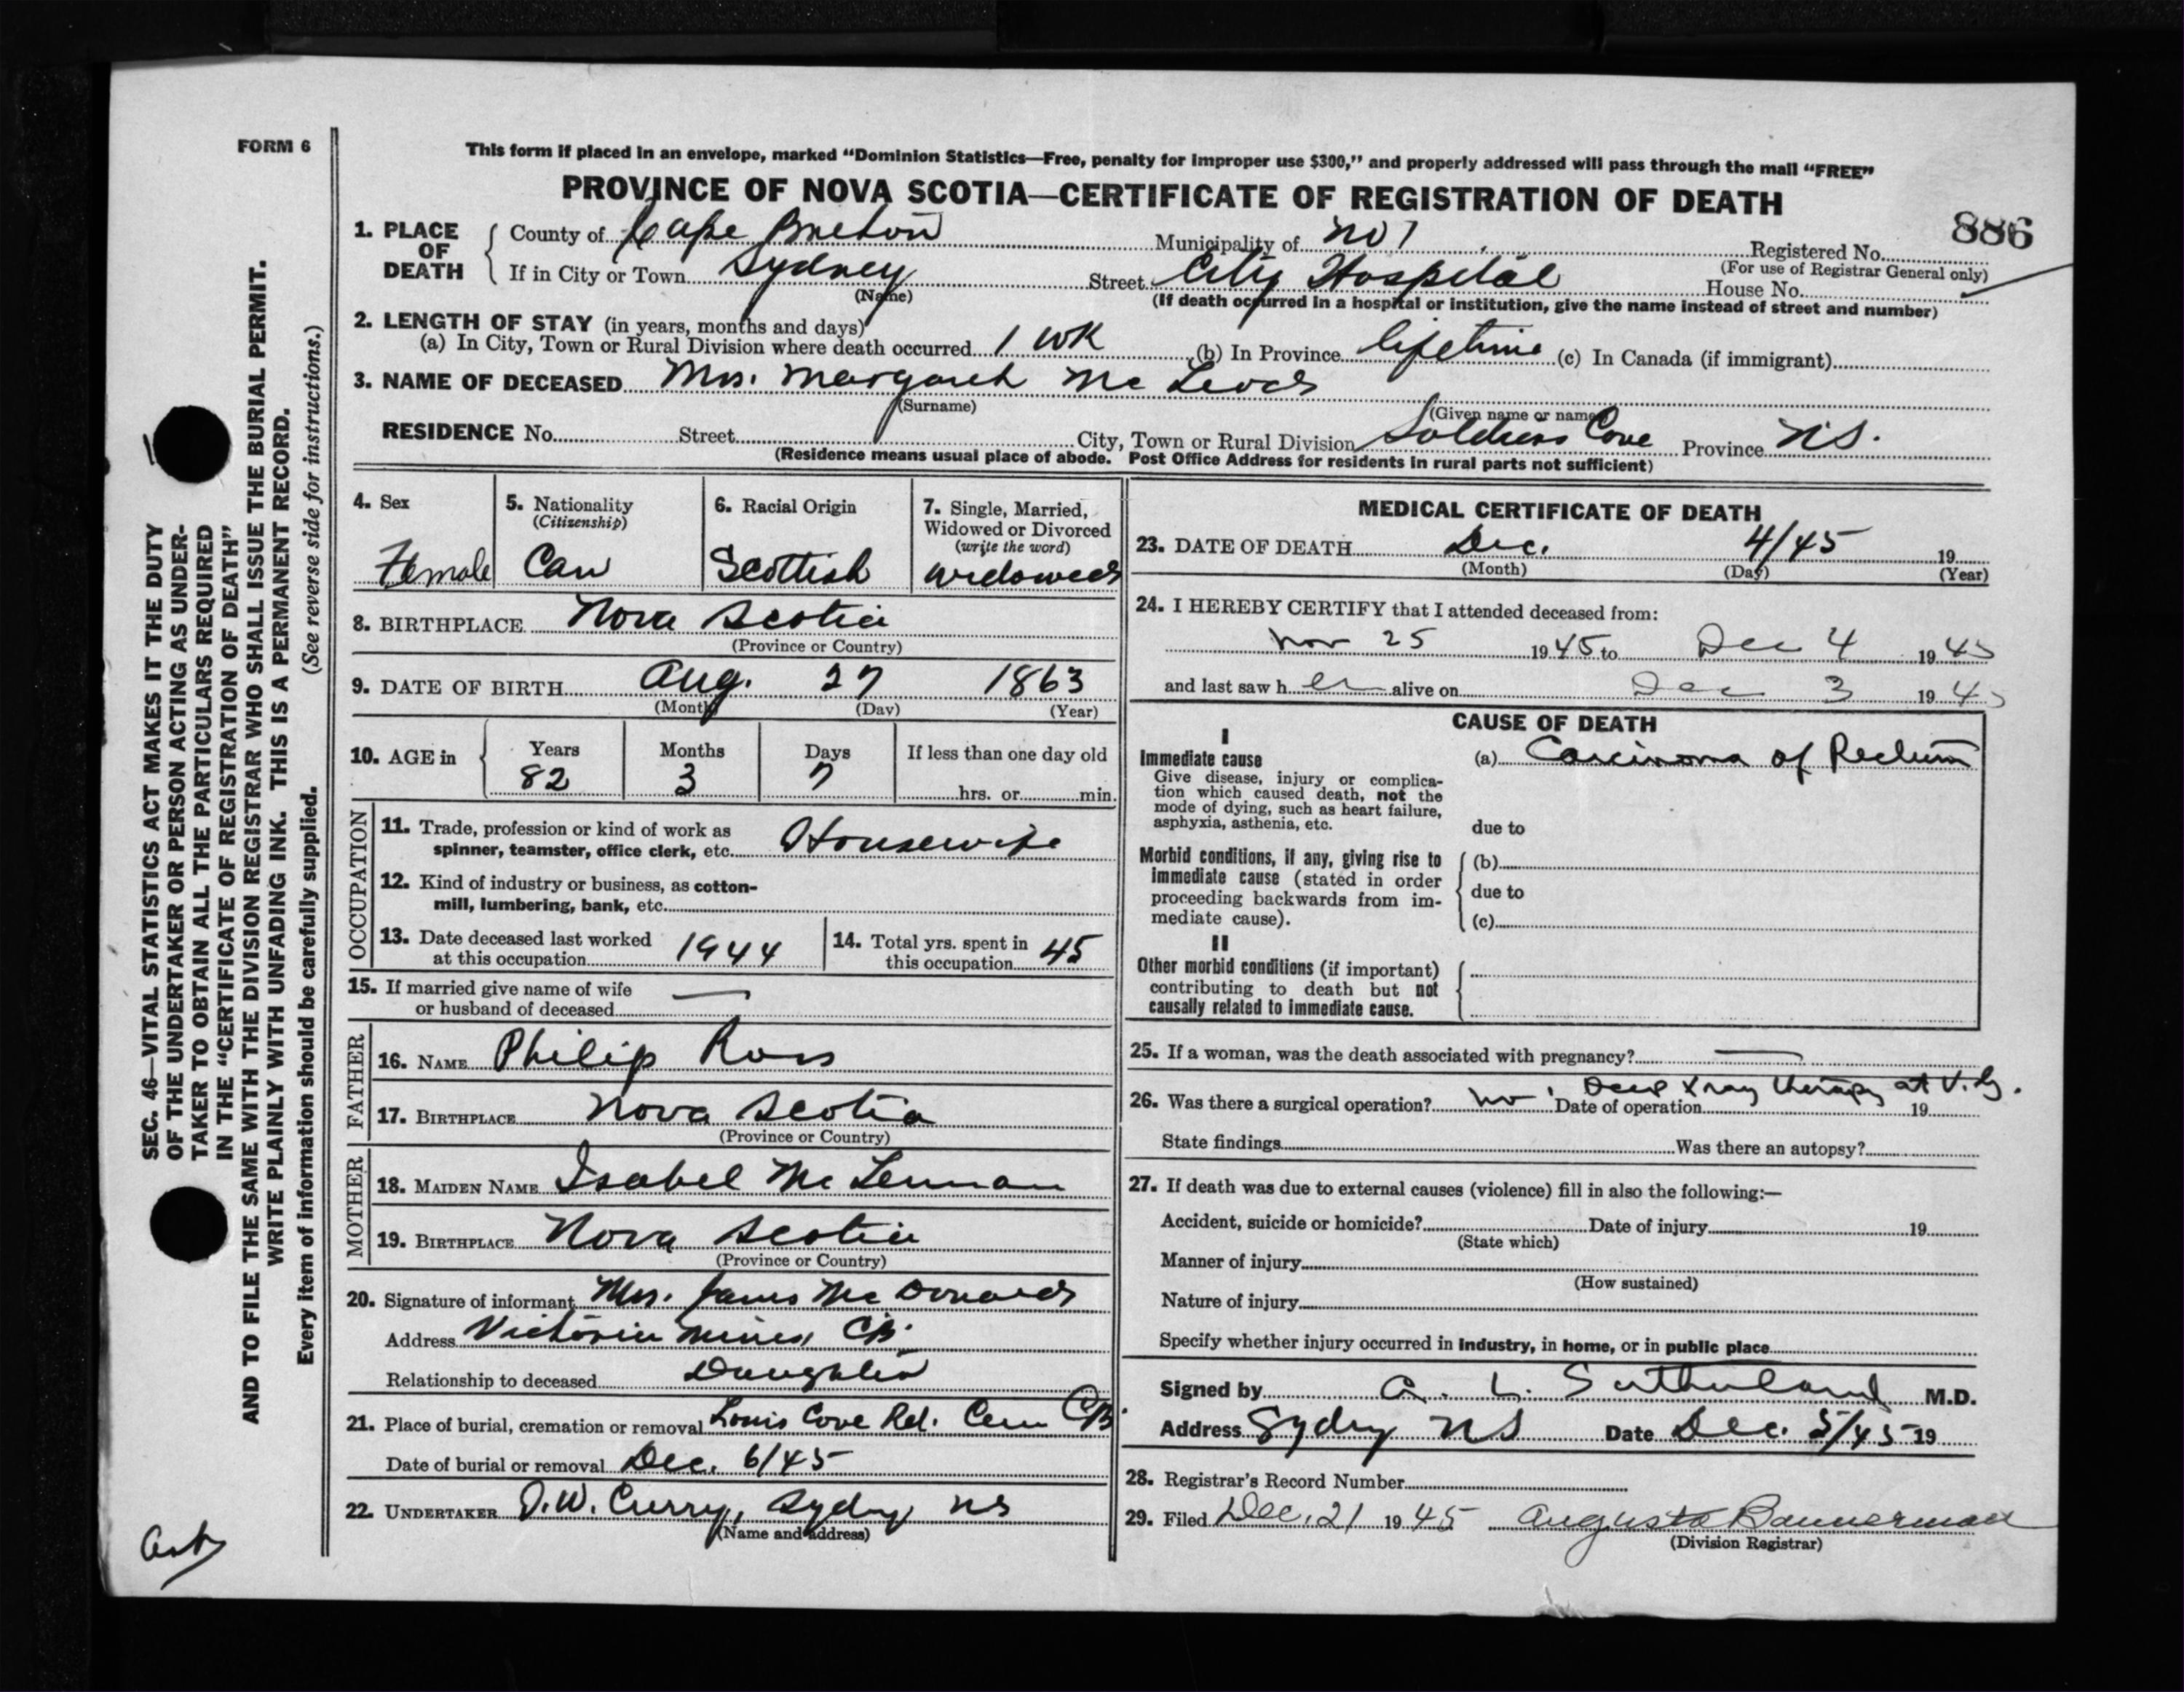 FORM 6
This form if placed in an envelope, marked “Dominion Statistics—Free, penalty for improper use $300,” and properly addressed will pass through the mail “FREE”
PROVINCE OF NOVA SCOTIA—CERTIFICATE OF REGISTRATION OF DEATH
886
1. PLACE OF DEATH
County of Cape Breton Municipality of No 1 Registered No.
(For use of Registrar General only)
If in City or Town Sydney Street City Hospital House No.
(Name) (If death occurred in a hospital or institution, give the name instead of street and number)
2. LENGTH OF STAY (in years, months and days)
(a) In City, Town or Rural Division where death occurred 1 wk (b) In Province lifetime (c) In Canada (if immigrant)
3. NAME OF DECEASED Mrs. Margaret Mc Leod
(Surname) (Given name or names)
RESIDENCE No. Street City, Town or Rural Division Soldiers Cove Province N.S.
(Residence means usual place of abode. Post Office Address for residents in rural parts not sufficient)
4. Sex
Female
5. Nationality
(Citizenship)
Can
6. Racial Origin
Scottish
7. Single, Married,
Widowed or Divorced
(write the word)
widowed
8. BIRTHPLACE Nova Scotia
(Province or Country)
9. DATE OF BIRTH Aug. 27 1863
(Month) (Day) (Year)
10. AGE in
Years Months Days If less than one day old
82 3 7 hrs. or min.
OCCUPATION
11. Trade, profession or kind of work as
spinner, teamster, office clerk, etc. Housewife
12. Kind of industry or business, as cotton-
mill, lumbering, bank, etc.
13. Date deceased last worked
at this occupation 1944
14. Total yrs. spent in
this occupation 45
15. If married give name of wife
or husband of deceased —
FATHER
16. NAME Philip Ross
17. BIRTHPLACE Nova Scotia
(Province or Country)
MOTHER
18. MAIDEN NAME Isabel Mc Lennan
19. BIRTHPLACE Nova Scotia
(Province or Country)
20. Signature of informant Mrs. James Mc Donald
Address Victoria Mines, C.B.
Relationship to deceased Daughter
21. Place of burial, cremation or removal Louis Cove Rd. Cem C.B.
Date of burial or removal Dec. 6/45
22. UNDERTAKER D.W. Curry, Sydney NS
(Name and address)
MEDICAL CERTIFICATE OF DEATH
23. DATE OF DEATH Dec. 4/45 19
(Month) (Day) (Year)
24. I HEREBY CERTIFY that I attended deceased from:
Nov 25 1945 to Dec 4 1945
and last saw her alive on Dec 3 1945
CAUSE OF DEATH
I
Immediate cause
Give disease, injury or complica-
tion which caused death, not the
mode of dying, such as heart failure,
asphyxia, asthenia, etc.
(a) Carcinoma of Rectum
due to
Morbid conditions, if any, giving rise to
immediate cause (stated in order
proceeding backwards from im-
mediate cause).
(b)
due to
(c)
II
Other morbid conditions (if important)
contributing to death but not
causally related to immediate cause.
25. If a woman, was the death associated with pregnancy? —
26. Was there a surgical operation? no Date of operation Deep Xray therapy at V.G. 19
State findings Was there an autopsy?
27. If death was due to external causes (violence) fill in also the following:—
Accident, suicide or homicide? Date of injury 19
(State which)
Manner of injury
(How sustained)
Nature of injury
Specify whether injury occurred in industry, in home, or in public place
Signed by A. L. Sutherland M.D.
Address Sydney NS Date Dec. 5/45 19
28. Registrar's Record Number
29. Filed Dec. 21 1945 Augusta Bannerman
(Division Registrar)
SEC. 46—VITAL STATISTICS ACT MAKES IT THE DUTY
OF THE UNDERTAKER OR PERSON ACTING AS UNDER-
TAKER TO OBTAIN ALL THE PARTICULARS REQUIRED
IN THE “CERTIFICATE OF REGISTRATION OF DEATH”
AND TO FILE THE SAME WITH THE DIVISION REGISTRAR WHO SHALL ISSUE THE BURIAL PERMIT.
WRITE PLAINLY WITH UNFADING INK. THIS IS A PERMANENT RECORD.
Every item of information should be carefully supplied. (See reverse side for instructions.)